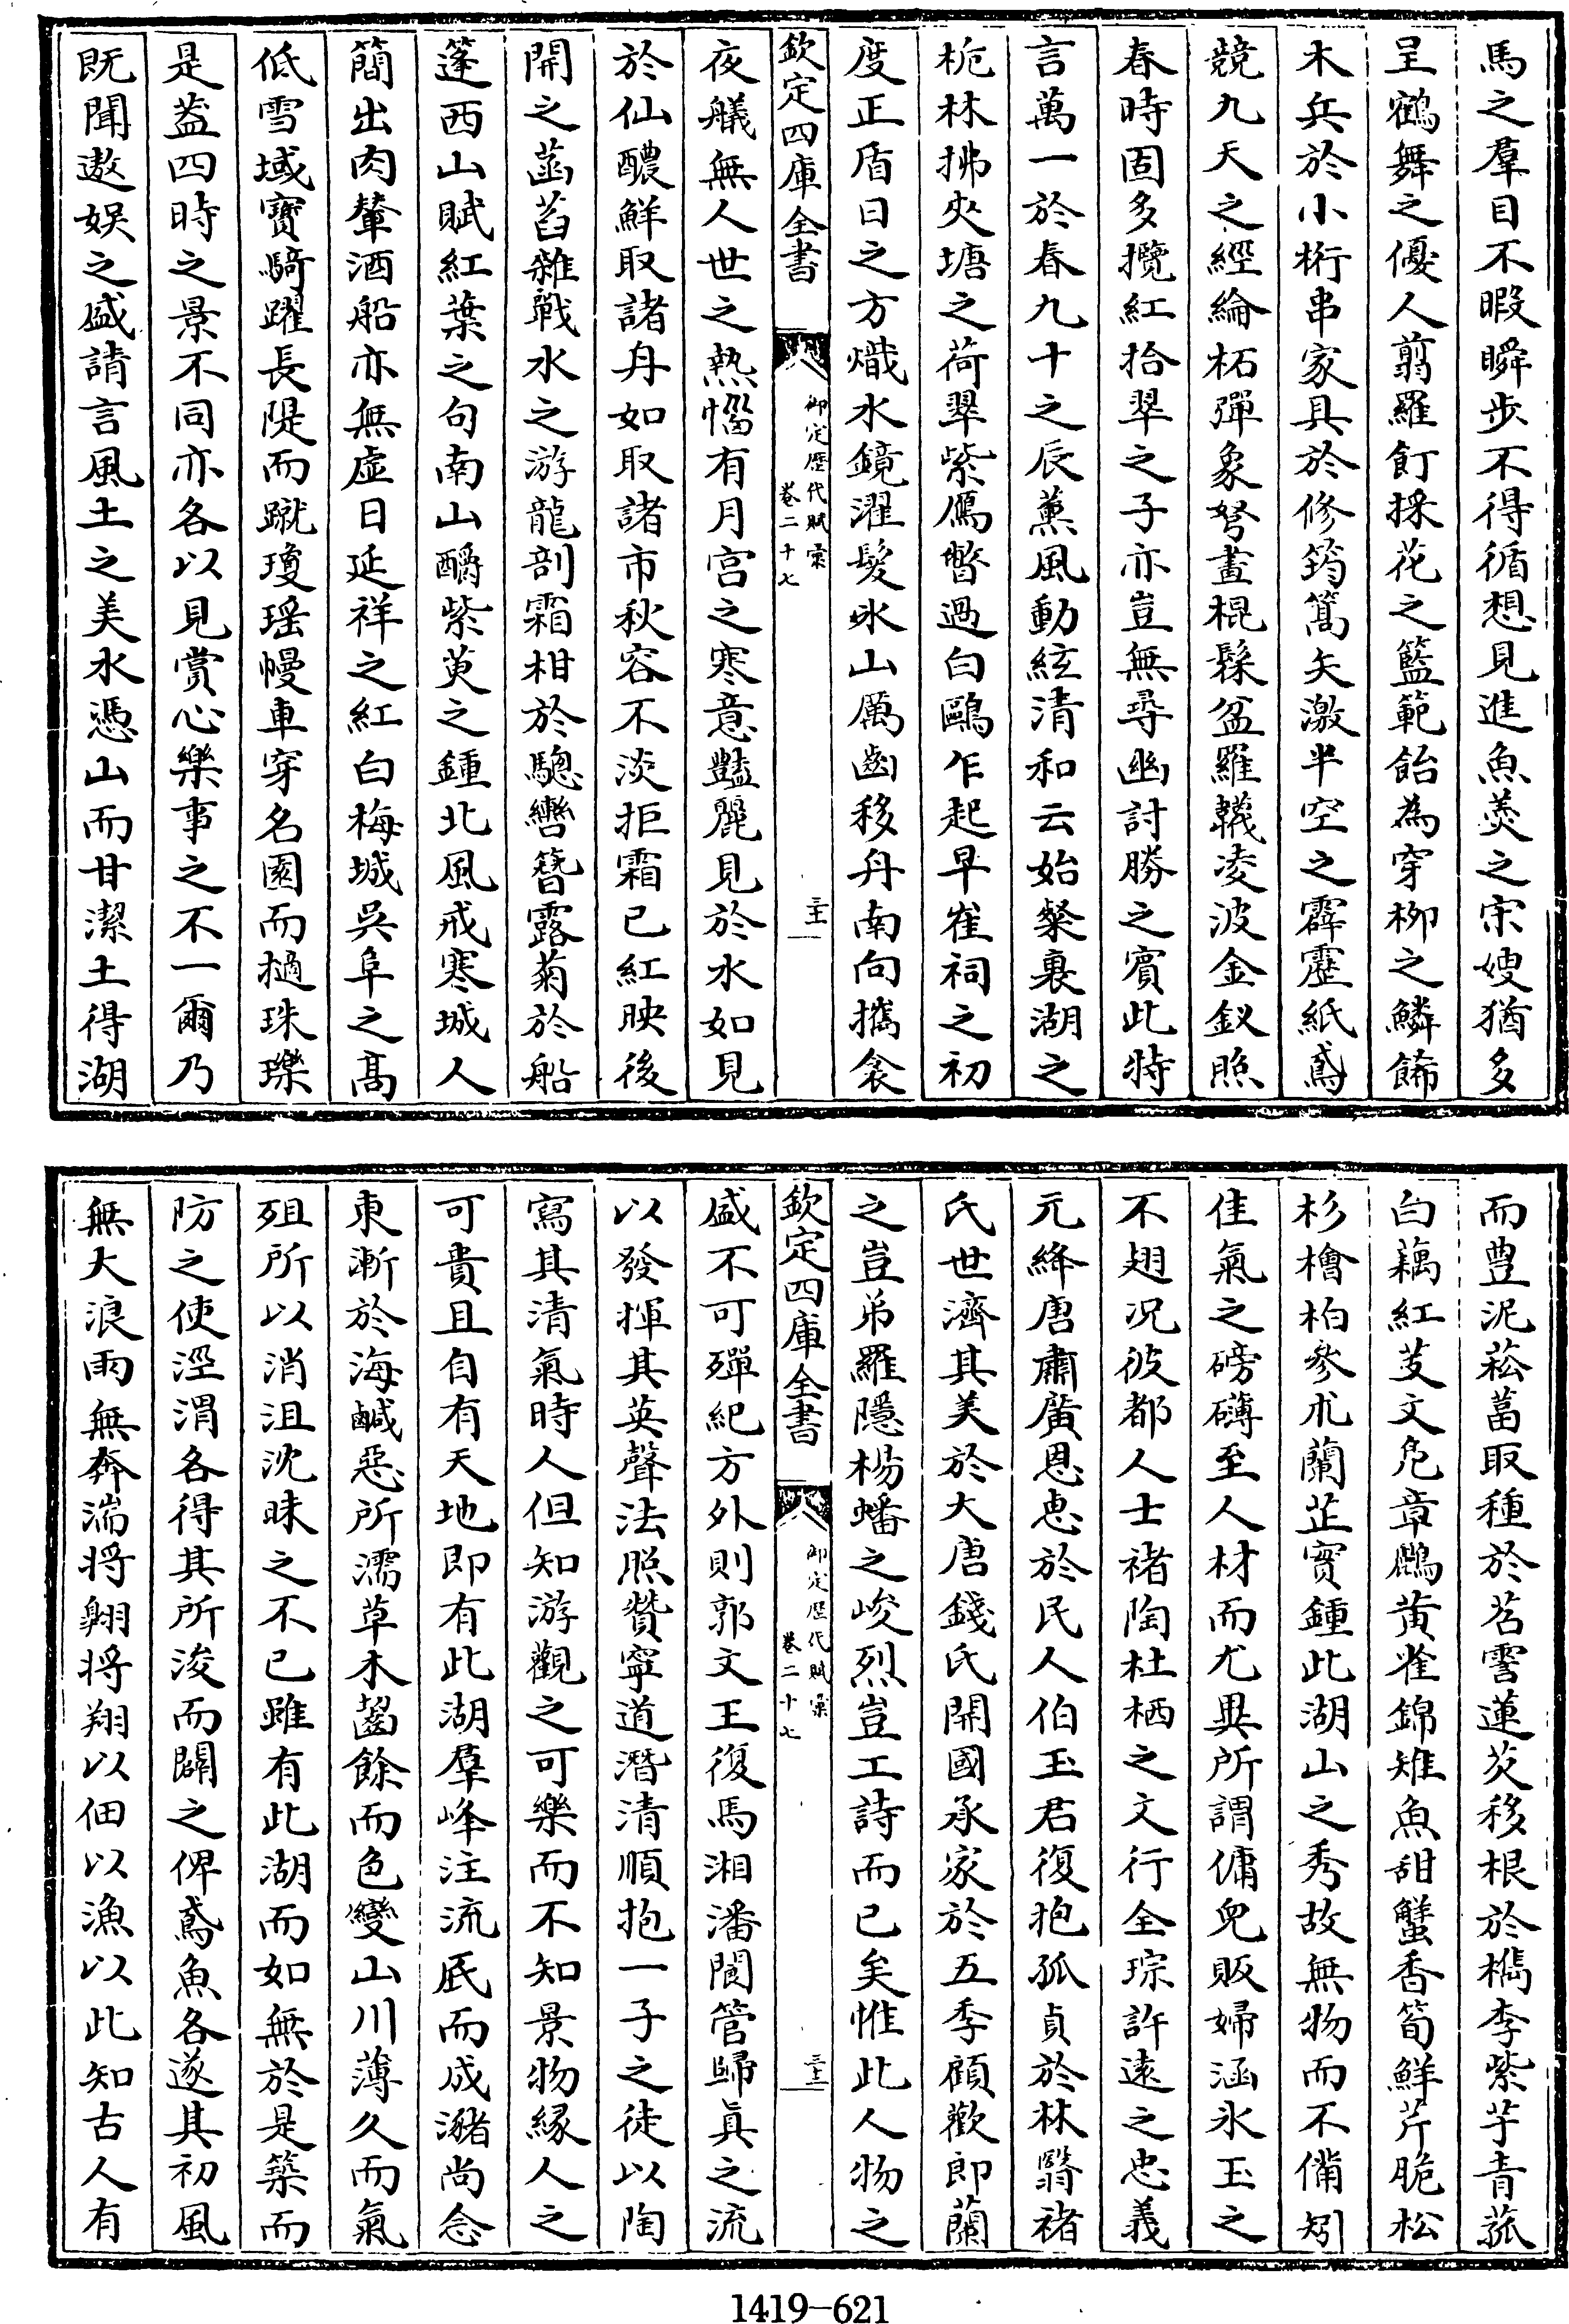 馬之羣目不暇瞬步不得循想見進魚羮之宋嫂猶多
呈鶴舞之優人翦羅飣採花之籃範飴為穿柳之鱗餙
木兵於小桁串家具於修筠篙矢激半空之霹靂紙鳶
競九天之經綸柘彈象弩畫棍鬆盆羅韈凌波金釵照
春時固多攬紅拾翠之子亦豈無尋幽討勝之賓此特
言萬一於春九十之辰薰風動絃清和云始粲裏湖之
栀林拂夾塘之荷翠紫鴈瞥過白鷗乍起早崔祠之初
度正盾日之方熾水鏡濯髮氷山厲齒移舟南向攜衾
欽定四庫全書
御定歴代賦彚
卷二十七
三十一
夜艤無人世之熱惱有月宫之寒意豔麗見於水如見
於仙醲鮮取諸舟如取諸市秋容不淡拒霜已紅映後
開之菡萏雜戰水之游龍剖霜柑於驄轡簪露菊於船
篷西山賦紅葉之句南山酹紫萸之鍾北風戒寒城人
簡出肉輦酒船亦無虚日延祥之紅白梅城吳阜之高
低雪域寳騎躍長隄而蹴瓊瑶幔車穿名園而撾珠璨
是葢四時之景不同亦各以見賞心樂事之不一爾乃
既聞遨娱之盛請言風土之美水憑山而甘潔土得湖
而豊泥菘葍取種於苕霅蓮芡移根於檇李紫芋青菰
白藕紅芰文鳬章鷉黄雀錦雉魚甜蟹香筍鮮芹脆松
杉檜柏參朮蘭芷實鍾此湖山之秀故無物而不備矧
佳氣之磅礴至人材而尤異所謂傭兒販婦涵氷玉之
不翅况彼都人士褚陶杜栖之文行全琮許逺之忠義
元絳唐肅廣恩恵於民人伯玉君復抱孤貞於林翳褚
氏世濟其美於大唐錢氏開國承家於五季顧歡即蘭
之豈弟羅隱楊蟠之峻烈豈工詩而已矣惟此人物之
欽定四庫全書
御定歴代賦彚
卷二十七
三十二
盛不可殫紀方外則郭文王復馬湘潘閬管歸真之流
以發揮其英聲法照贊寧道潛清順抱一子之徒以陶
寫其清氣時人但知游觀之可樂而不知景物緣人之
可貴且自有天地即有此湖羣峰注流厎而成瀦尚念
東漸於海鹹惡所濡草木齧餘而色變山川薄久而氣
殂所以消沮沈昧之不已雖有此湖而如無於是築而
防之使涇渭各得其所浚而闢之俾鳶魚各遂其初風
無大浪雨無奔湍將翺將翔以佃以漁以此知古人有
1419-621